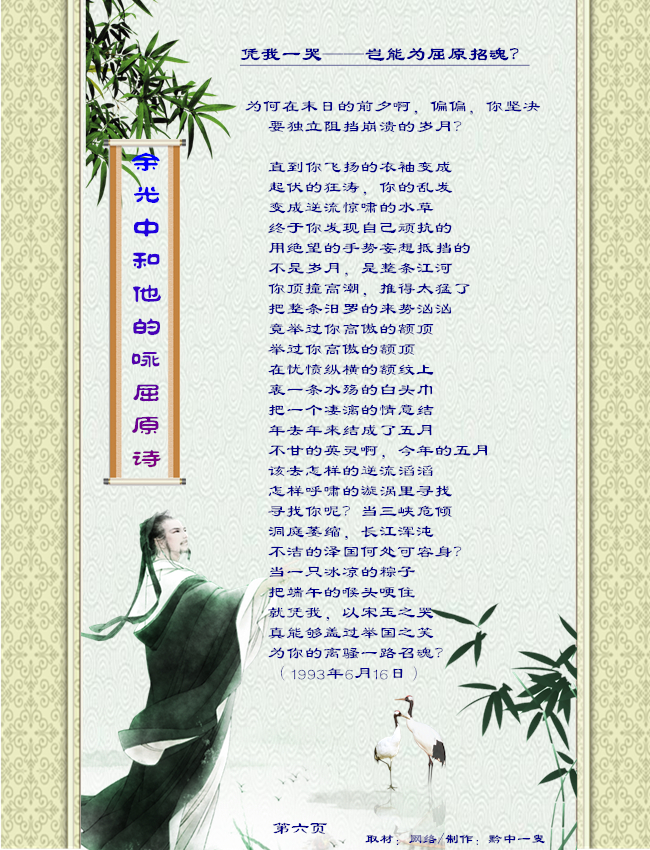 凭我一哭——岂能为屈原招魂?
为何在末日的前夕啊，偏偏，你坚决
要独立阻挡崩溃的岁月?
直到你飞扬的衣袖变成
起伏的狂涛，你的乱发
变成逆流惊啸的水草
终于你发现自己顽抗的
用绝望的手势妄想抵挡的
不是岁月，是整条江河
你顶撞高潮，推得太猛了
把整条汨罗的来势汹汹
竟举过你高傲的额顶
举过你高傲的额顶
在忧愤纵横的额纹上
裹一条水殇的白头巾
把一个凄漓的情意结
年去年来结成了五月
不甘的英灵啊，今年的五月
该去怎样的逆流滔滔
怎样呼啸的漩涡里寻找
寻找你呢? 当三峡危倾
洞庭萎缩，长江浑沌
不洁的泽国何处可容身?
当一只冰凉的粽子
把端午的喉头哽住
就凭我，以宋玉之哭
真能够盖过举国之笑
为你的离骚一路召魂?
（1993年6月16日）
余光中和他的咏屈原诗
第六页
取材：网络/制作：黔中一叟